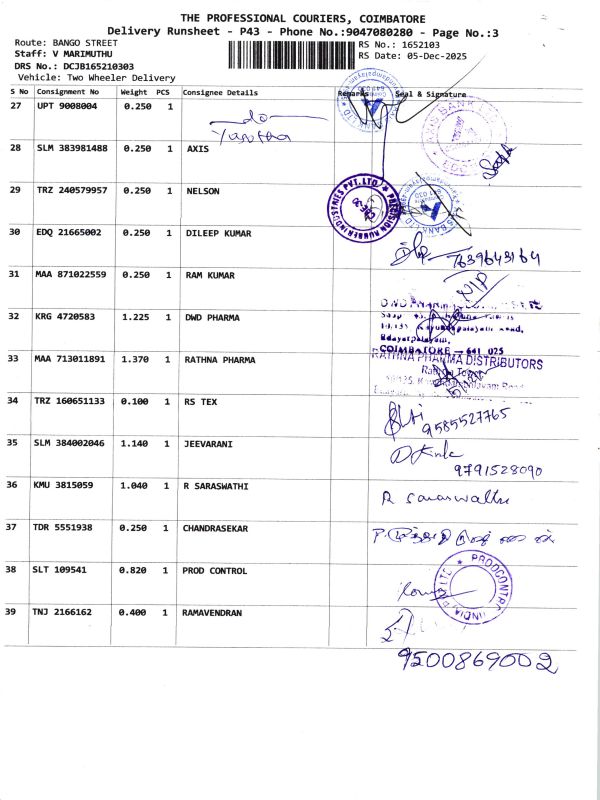 THE PROFESSIONAL COURIERS, COIMBATORE
Delivery Runsheet - P43 - Phone No.:9047080280 - Page No.:3
Route: BANGO STREET
RS No.: 1652103
Staff: V MARIMUTHU
RS Date: 05-Dec-2025
DRS No.: DCJB165210303
Vehicle: Two Wheeler Delivery
S No Consignment No Weight PCS Consignee Details Remarks Seal & Signature
27 UPT 9008004 0.250 1
28 SLM 383981488 0.250 1 AXIS
29 TRZ 240579957 0.250 1 NELSON
PRECISION RUBBER INDUSTRIES PVT. LTD
30 EDQ 21665002 0.250 1 DILEEP KUMAR
7639643164
31 MAA 871022559 0.250 1 RAM KUMAR
32 KRG 4720583 1.225 1 DWD PHARMA
Udayampalayam,
COIMBATORE - 641 025
33 MAA 713011891 1.370 1 RATHNA PHARMA
RATHNA PHARMA DISTRIBUTORS
34 TRZ 160651133 0.100 1 RS TEX
9585527765
35 SLM 384002046 1.140 1 JEEVARANI
9791528090
36 KMU 3815059 1.040 1 R SARASWATHI
R Saraswathi
37 TDR 5551938 0.250 1 CHANDRASEKAR
38 SLT 109541 0.820 1 PROD CONTROL
39 TNJ 2166162 0.400 1 RAMAVENDRAN
9500869002